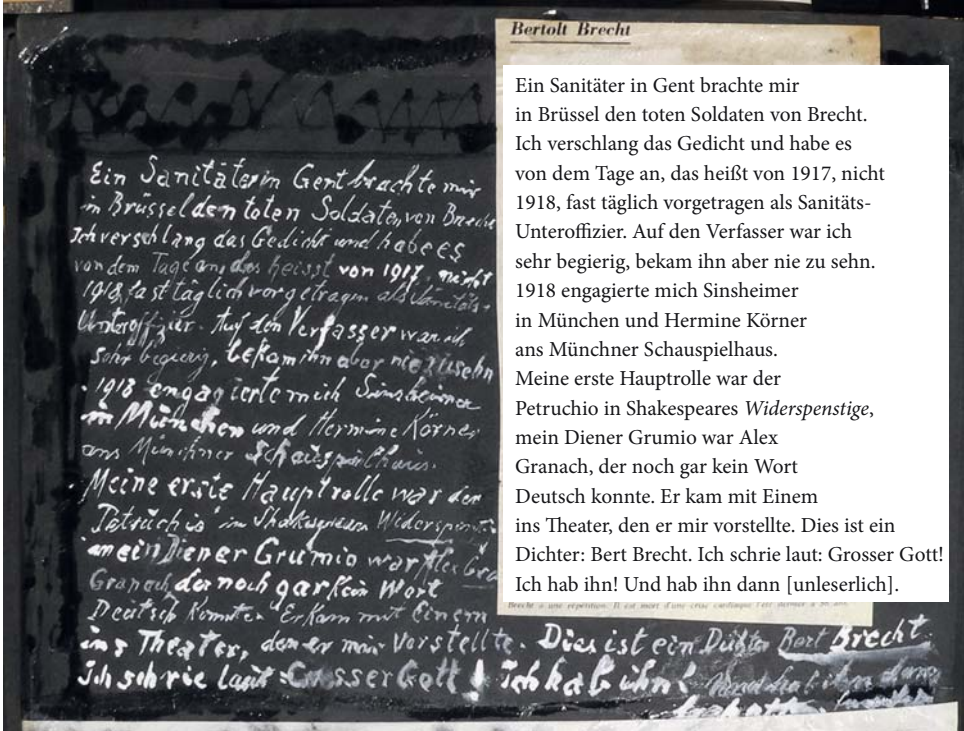 Bertolt Brecht
Ein Sanitäter in Gent brachte mir
in Brüssel den toten Soldaten von Brecht.
Ich verschlang das Gedicht und habe es
von dem Tage an, das heißt von 1917, nicht
1918, fast täglich vorgetragen als Sanitäts-
Unteroffizier. Auf den Verfasser war ich
sehr begierig, bekam ihn aber nie zu sehn.
1918 engagierte mich Sinsheimer
in München und Hermine Körner
ans Münchner Schauspielhaus.
Meine erste Hauptrolle war der
Petruchio in Shakespeares Widerspenstige,
mein Diener Grumio war Alex
Granach, der noch gar kein Wort
Deutsch konnte. Er kam mit Einem
ins Theater, den er mir vorstellte. Dies ist ein
Dichter: Bert Brecht. Ich schrie laut: Grosser Gott!
Ich hab ihn! Und hab ihn dann [unleserlich].
Brecht à une répétition. Il est mort d'une crise cardiaque l'été dernier à
Ein Sanitäter in Gent brachte mir
in Brüssel den toten Soldaten von Breche
Ich verschlang das Gedicht und habe es
von dem Tage an, das heisst von 1917, nicht
1918, fast täglich vorgetragen als Sanitäts-
Unteroffizier. Auf den Verfasser war ich
sehr begierig, bekam ihn aber nie zu sehn
1918 engagierte mich Sinsheimer
in München und Hermine Körner
ans Münchner Schauspielhaus.
Meine erste Hauptrolle war der
Petruchio in Shakespeares Widerspensti
mein Diener Grumio war Alex Gra
Granach, der noch gar kein Wort
Deutsch konnte. Er kam mit Einem
ins Theater, den er mir vorstellte. Dies ist ein Dichter Bert Brecht.
Ich schrie laut: Grosser Gott! Ich hab ihn! Und hab ihn dann